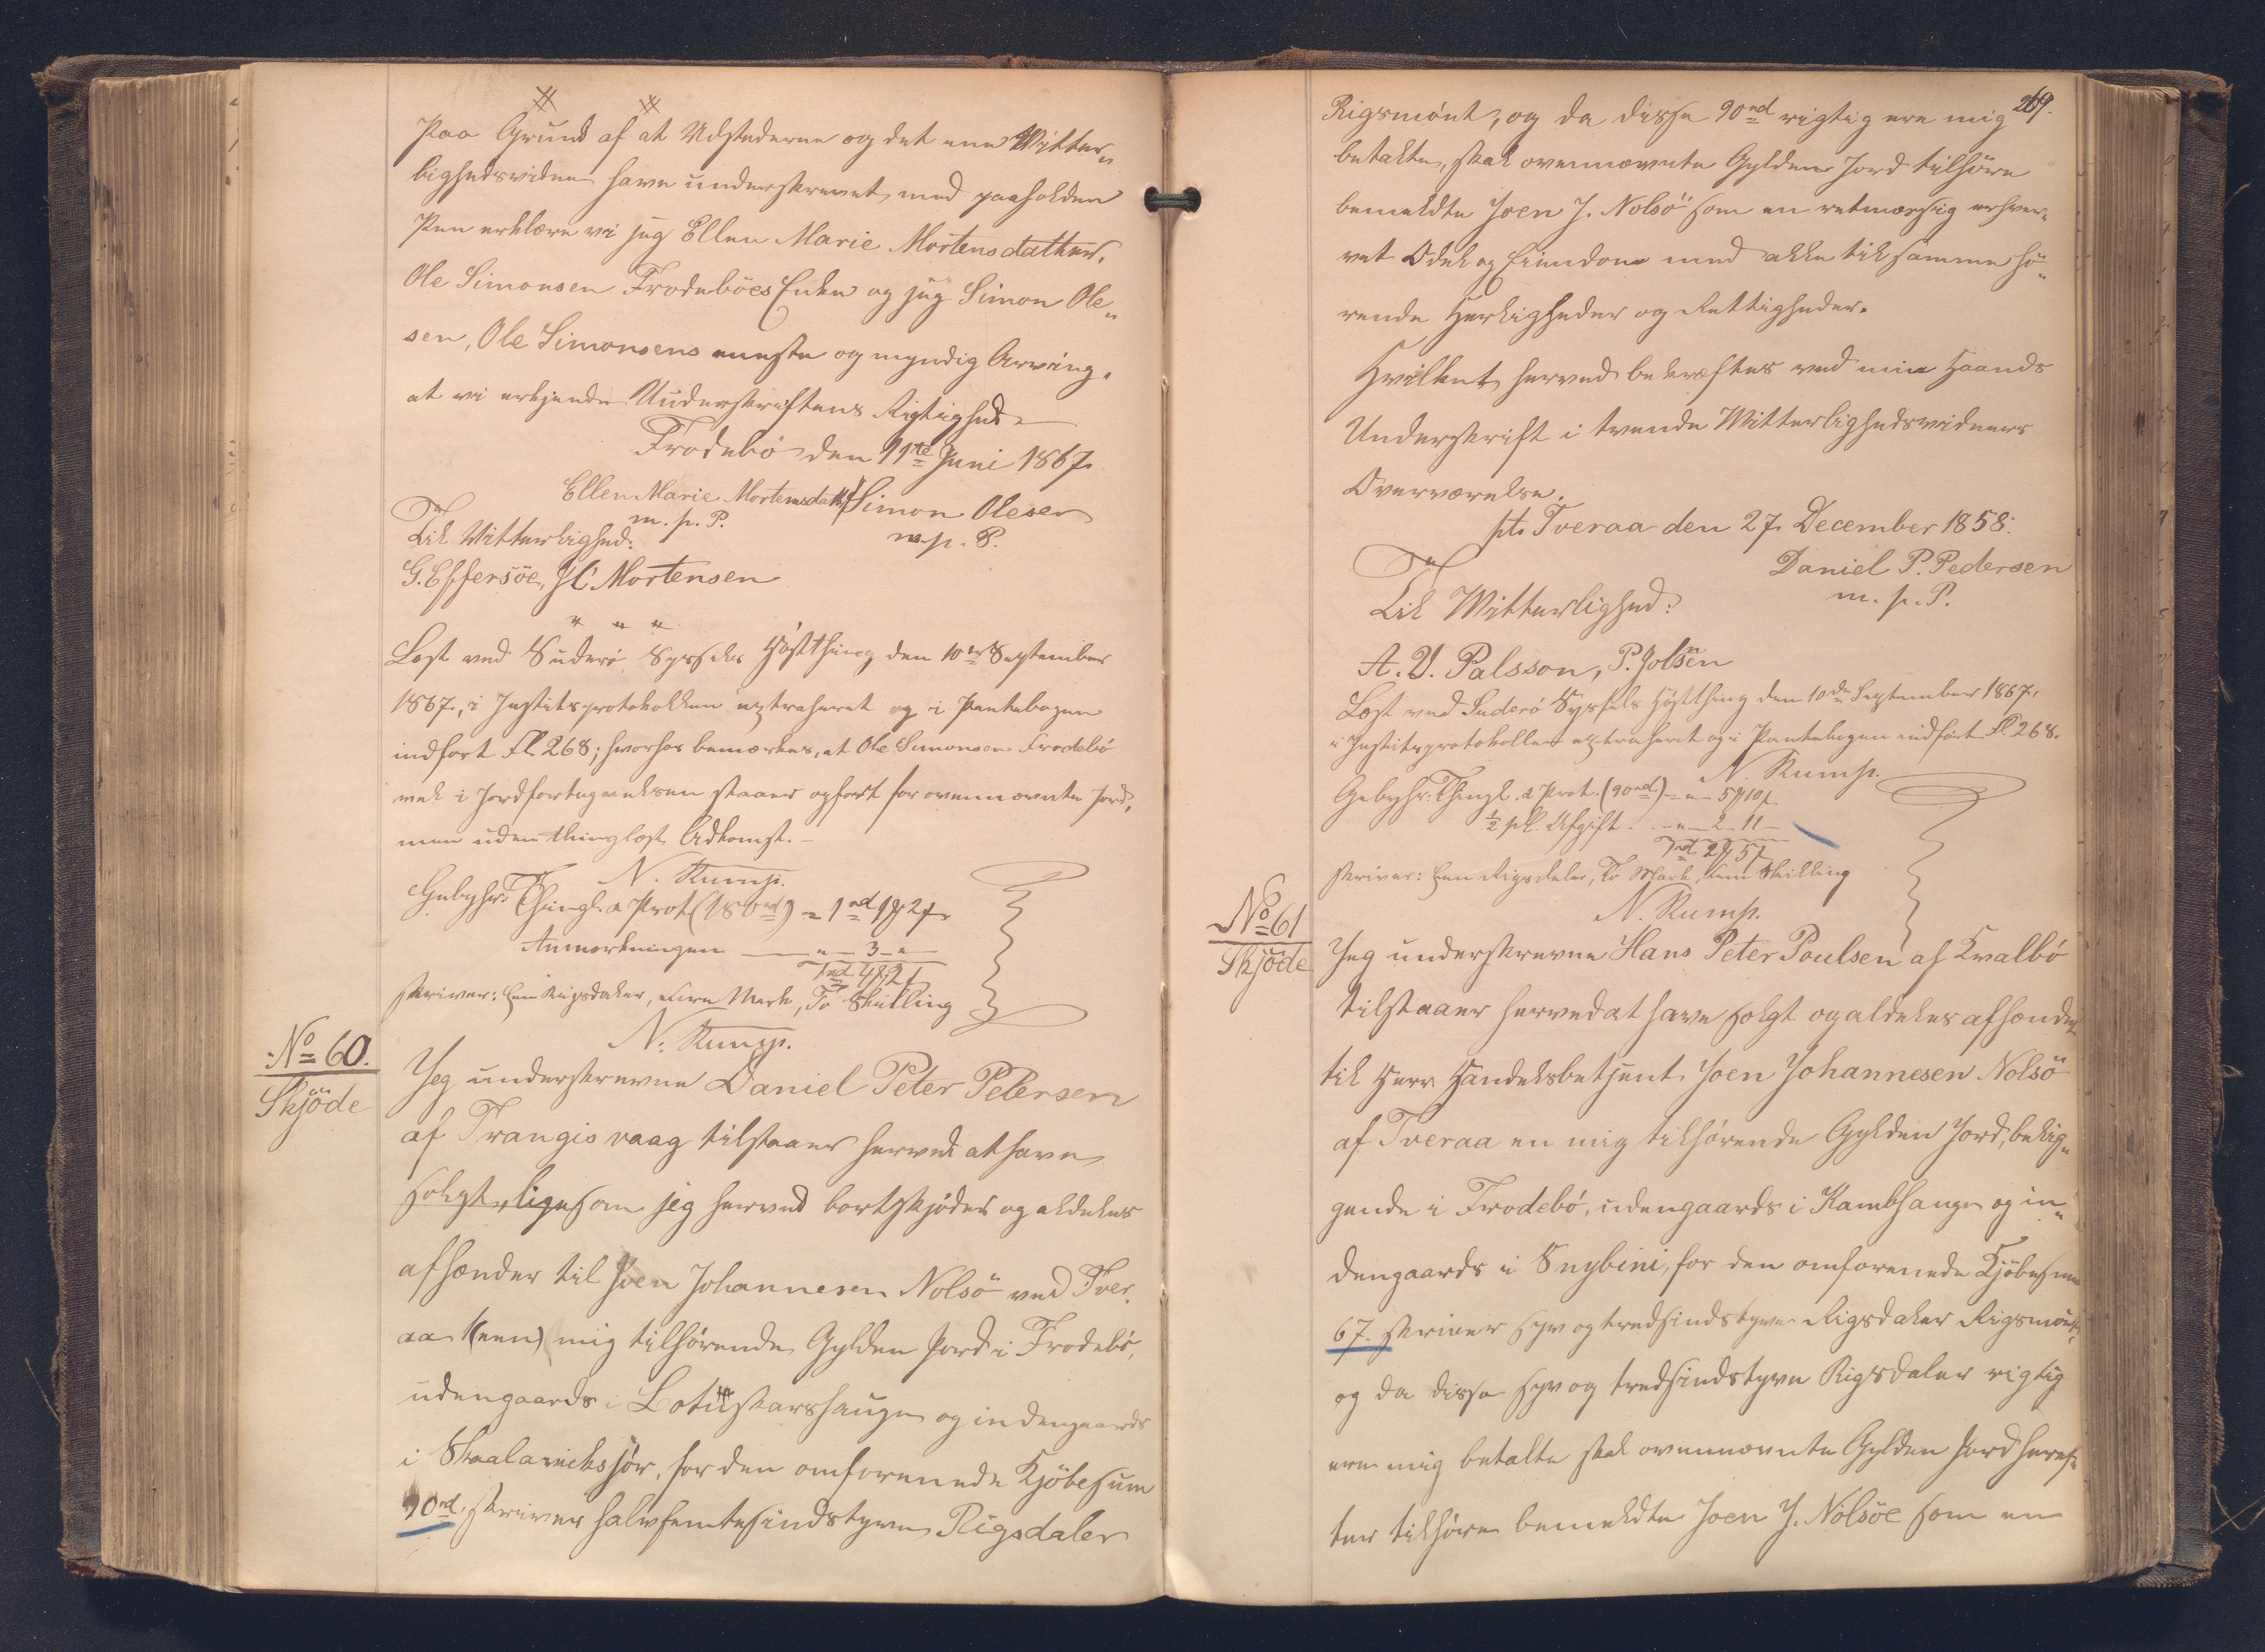 Paa Grund af at Udstederne og det ene Vitter„
lighedsvidne have underskrevet med paaholden
Pen erklære vi jeg Ellen Marie Mortensdatter,
Ole Simonsen Frodeböes Enke og jeg Simon Ole„
sen, Ole Simonsens eneste og myndig Arving,
at vi erkjende Underskriftens Rigtighed.
Frodebö den 11te Juni 1867.
Ellen Marie Mortensdatter Simon Olesen
m. p. P. m. p. P.
Til Vitterlighed:
G. Effersöe, J C Mortensen
" " "
Læst ved Suderö Syssels Høstthing den 10de September
1867, i Justitsprotokollen extraheret og i Pantebogen
indført Fl. 268; hvorhos bemærkes, at Ole Simonsen Frodebö
vel i Jordfortegnelsen staaer opført for ovennævnte Jord,
men uden thinglæst Adkomst. –
N. Rump.
Gebyhr: Thingl. & Prot (180rd) = 1rd 1 2
Anmærkningen — " — 3 — "
1rd 4 2
skriver: Een Rigsdaler, Fire Mark, To Skilling
N. Rump.
No 60.
Skjöde
Jeg underskrevne Daniel Peter Petersen
af Trangisvaag tilstaaer herved at have
solgt, ligesom jeg herved bortskjøder og aldeles
afhænder til Joen Johannesen Nolsö ved Tver„
aa 1 (een) mig tilhørende Gylden Jord i Frodebö,
udengaards i Lotuskarshaugen og indengaards
i , for den omforenede Kjöbesum
90rd. skriver halvfemtesindstyve Rigsdaler
269.
Rigsmönt, og da disse 90rd rigtig ere mig
betalte, skal ovennævnte Gylden Jord tilhøre
bemeldte Joen J. Nolsö som en retmæssig erhver„
vet Odel og Eiendom med alle til samme hö„
rende Herligheder og Rettigheder.
Hvilket herved bekræftes ved min Haands
Underskrift i tvende Vitterlighedsvidners
Overværelse.
pt. Tveraa den 27. December 1858.
Daniel P. Pedersen
m. p. P.
Til Vitterlighed:
A. V. Palsson, P. Jolsen
Læst ved Suderö Syssels Høstthing den 10de September 1867,
i Justitsprotokollen extraheret og i Pantebogen indført Fl. 268.
N. Rump.
Gebyhr: Thingl. & Prot. (90rd) — " — 5 10
½ pC. Afgift . — " — 2 — 11 —
1rd 2 5
skriver: Een Rigsdaler, To Mark, Fem Skilling
N. Rump.
No 61
Skjöde
Jeg underskrevne Hans Peter Poulsen af Kvalbö
tilstaaer herved at have solgt og aldeles afhændet
til Herr Handelsbetjent Joen Johannesen Nolsö
af Tveraa en mig tilhørende Gylden Jord, belig„
gende i Frodebö, udengaards i Kambhauge og in„
dengaards i Snybini, for den omforenede Kjöbesum
67. skriver syv og tredsindstyve Rigsdaler Rigsmönt,
og da disse syv og tredsindstyve Rigsdaler rigtig
ere mig betalte skal ovennævnte Gylden Jord heref„
ter tilhøre bemeldte Joen J. Nolsöe som en